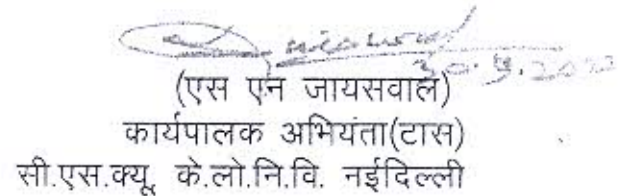 30.9.2020
(एस एन जायसवाल)
कार्यपालक अभियंता(टास)
सी.एस.क्यू, के.लो.नि.वि. नईदिल्ली